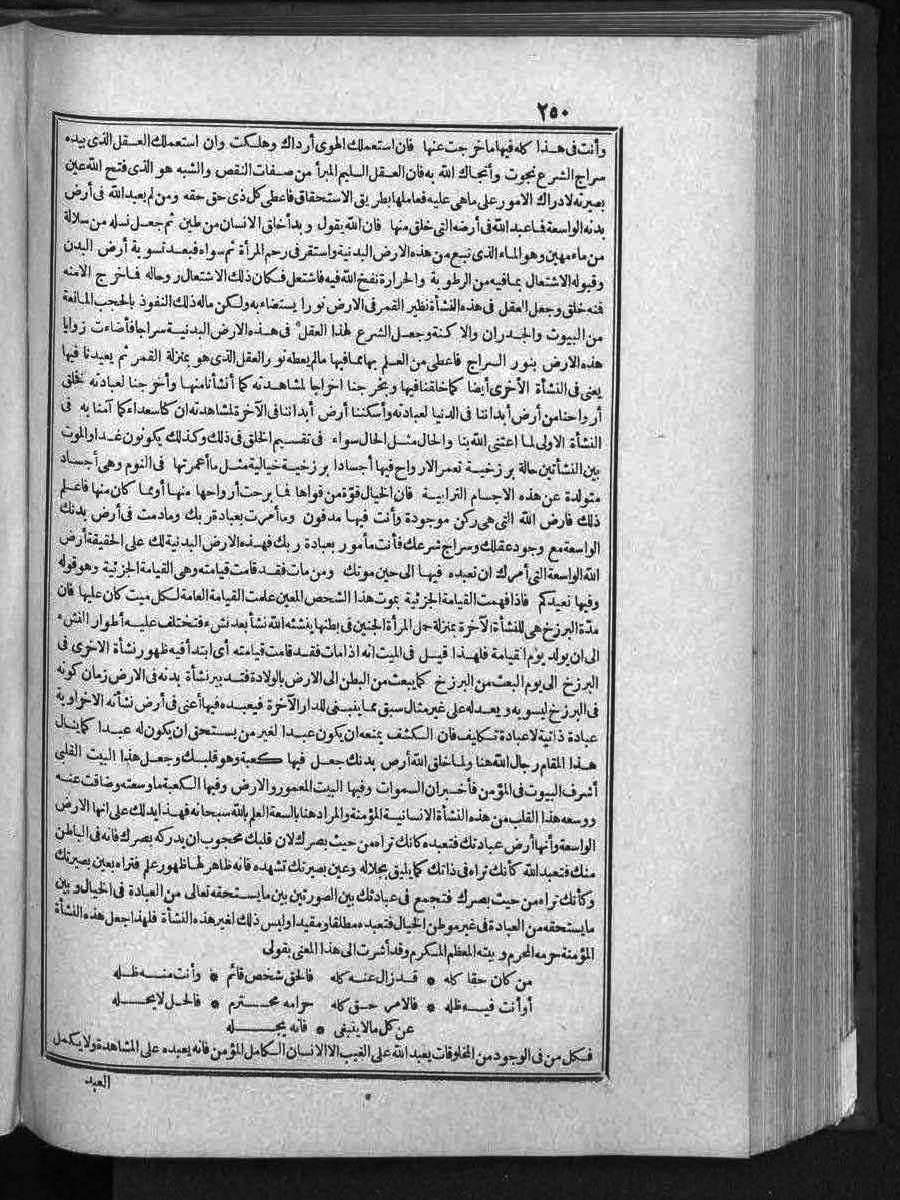 ٢٥٠
وأنت فى هذا كله فيها ما خرجت عنها فان استعملك الهوى أرداك وهلكت وان استعملك العقل الذى بيده
سراج الشرع نجوت وأنجاك الله به فان العقل السليم المبرأ من صفات النقص والشبه هو الذى فتح الله عين
بصيرته لادراك الامور على ماهى عليه فعاملها بطريق الاستحقاق فاعطى كل ذى حق حقه ومن لم يعبد الله فى أرض
بدنه الواسعة فما عبد الله فى أرضه التى خلق منها فان الله يقول وبدأ خلق الانسان من طين ثم جعل نسله من سلالة
من ماء مهين وهو الماء الذى نبع من هذه الارض البدنية واستقر فى رحم المرأة ثم سواه فبعد تسوية أرض البدن
وقبوله الاشتعال بما فيه من الرطوبة والحرارة نفخ الله فيه فاشتعل فكان ذلك الاشتعال روحا له فاخرج الامنه
فنه خلق وجعل العقل فى هذه النشأة نظير القمر فى الارض نورا يستضاء به ولكن ماله ذلك النفوذ بالحجب المانعة
من البيوت والجدران والاكنة وجعل الشرع لهذا العقل فى هذه الارض البدنية سراجا فأضاءت زوايا
هذه الارض بنور السراج فاعطى من العلم بها بما فيها مالم يعطه نور العقل الذى هو بمنزلة القمر ثم يعيدنا فيها
يعنى فى النشأة الأخرى أيضا كما خلقنا فيها ويخرجنا اخراجا لمشاهدته كما أنشأنا منها وأخرجنا لعبادته فخلق
أرواحنا من أرض أبداننا فى الدنيا لعبادته وأسكننا أرض أبداننا فى الآخرة لمشاهدته ان كنا سعداء كما آمنا به فى
النشأة الاولى لما اعتنى الله بنا والحال مثل الحال سواء فى تقسيم الخلق فى ذلك وكذلك يكونون غدا والموت
بين النشأتين حالة برزخية تعمر الارواح فيها أجسادا برزخية خيالية مثل ما أعمرتها فى النوم وهى أجساد
متولدة عن هذه الاجسام الترابية فان الخيال قوة من قواها فما برحت أرواحها منها أو مما كان منها فاعلم
ذلك فارض الله التى هى ركن موجودة وأنت فيها مدفون وما أمرت بعبادة ربك وما دمت فى أرض بدنك
الواسعة مع وجود عقلك وسراج شرعك فأنت مأمور بعبادة ربك فهذه الارض البدنية لك على الحقيقة أرض
الله الواسعة التى أمرك ان تعبده فيها الى حين موتك ومن مات فقد قامت قيامته وهى القيامة الجزئية وهو قوله
وفيها نعيدكم فاذا فهمت القيامة الجزئية بموت هذا الشخص المعين علمت القيامة العامة لكل ميت كان عليها فان
مدة البرزخ هى للنشأة الآخرة بمنزلة حمل المرأة الجنين فى بطنها ينشئه الله نشأ بعد نشء فتختلف عليه أطوار النشء
الى ان يولد يوم القيامة فلهذا قيل فى الميت انه اذا مات فقد قامت قيامته أى ابتدأ فيه ظهور نشأة الاخرى فى
البرزخ الى يوم البعث من البرزخ كما يبعث من البطن الى الارض بالولادة فتدبير نشأة بدنه فى الارض زمان كونه
فى البرزخ ليسويه ويعدله على غير مثال سبق مما ينبغى للدار الآخرة فيعبده فيها أعنى فى أرض نشأته الاخراوية
عبادة ذاتية لا عبادة تكليف فان الكشف يمنعه ان يكون عبدا لغير من يستحق ان يكون له عبدا كما ينال
هذا المقام رجال الله هنا ولما خلق الله أرض بدنك جعل فيها كعبة وهو قلبك وجعل هذا البيت القلبى
أشرف البيوت فى المؤمن فأخبر ان السموات وفيها البيت المعمور والارض وفيها الكعبة ما وسعته وضاقت عنه
ووسعه هذا القلب من هذه النشأة الانسانية المؤمنة والمراد هنا بالسعة العلم بالله سبحانه فهذا يدلك على انها الارض
الواسعة وأنها أرض عبادتك فتعبده كانك تراه من حيث بصرك لان قلبك محجوب ان يدركه بصرك فانه فى الباطن
منك فتعبد الله كأنك تراه فى ذاتك كما يليق بجلاله وعين بصيرتك تشهده فانه ظاهر لها ظهور علم فتراه بعين بصيرتك
وكأنك تراه من حيث بصرك فتجمع فى عبادتك بين الصورتين بين ما يستحقه تعالى من العبادة فى الخيال وبين
ما يستحقه من العبادة فى غير موطن الخيال فتعبده مطلقا ومقيدا وليس ذلك لغير هذه النشأة فلهذا جعل هذه النشأة
المؤمنة حرمه المحرم وبيته المعظم المكرم وقد أشرت الى هذا المعنى بقولى
من كان حقا كله * قد زال عنه كله فالحق شخص قائم * وأنت منه ظله
أو أنت فيه ظله * فالامر حق كله حرامه محترم * فالحل لا يحله
عن كل مالا ينبغى * فانه يجله
فكل من فى الوجود من المخلوقات يعبد الله على الغيب الا الانسان الكامل المؤمن فانه يعبده على المشاهدة ولا يكمل
العبد